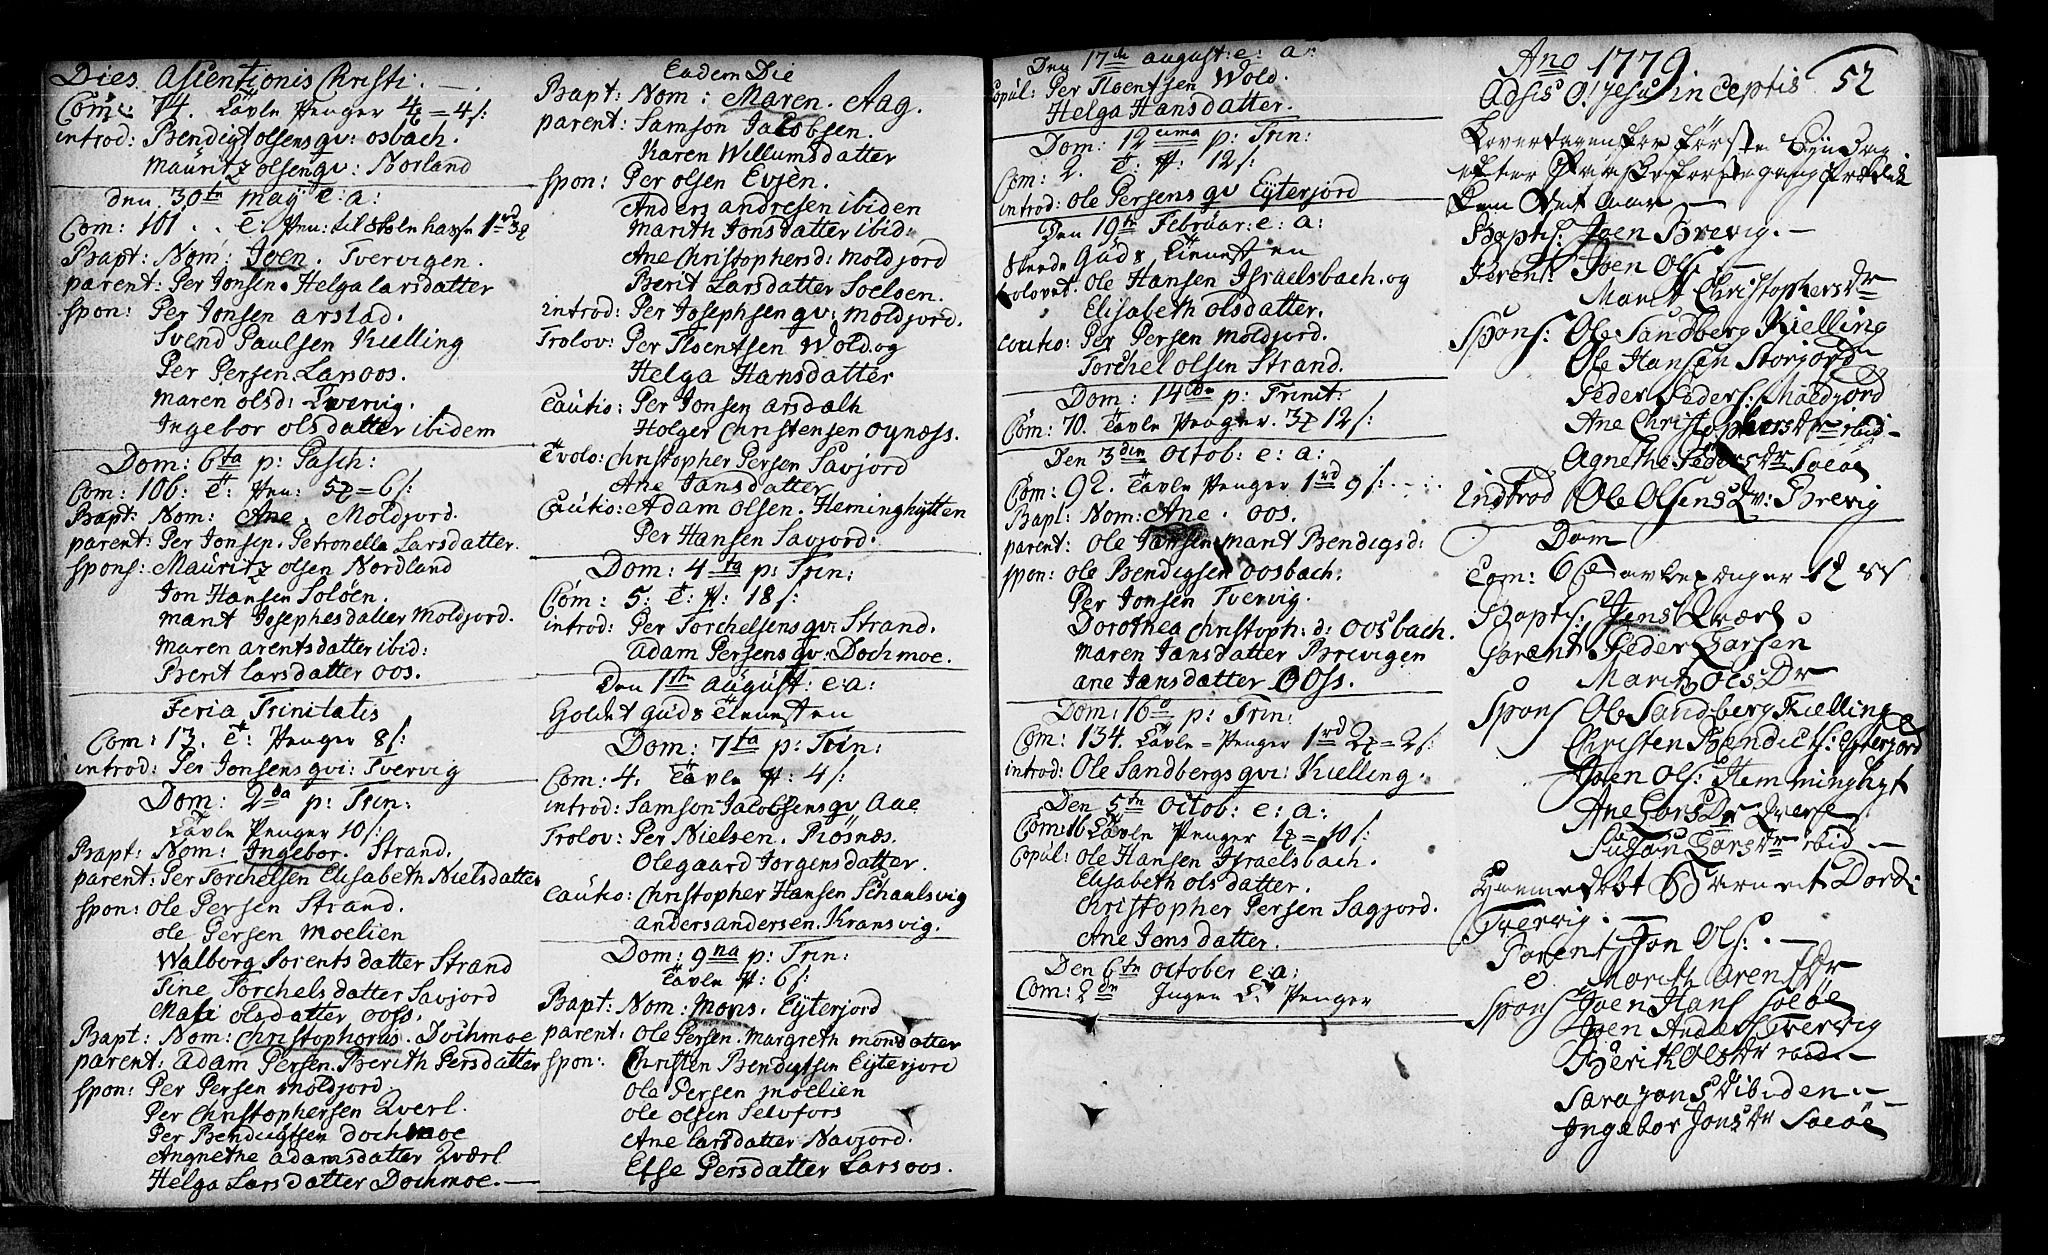 Dies Ascentionis Christi: —.
Com: 74. Tavle Penger 4 = 4 s:
introd: Bendigt olsens qv: osbach.
Mauritz olsen qv: Norland
den 30te may e: a:
Com: 101
Bapt: Nom: Joen. Tvervigen.
parent: Per Jonsen. Helga larsdatter
spon: Per Jonsen arstad.
Svend Paulsen Kielling
Per Persen Larsoos.
maren olsd: Tvervig.
Ingebor olsdatter ibidem
Dom: 6ta p: Pasch:
Com: 106: T: Pen: 5 = 6 s:
Bapt: Nom: Ane. Moldjord.
parent: Per Jonsen. Petronella Larsdatter.
spons: Mauritz olsen Nordland
Jon Hansen Soløen.
marit Josephesdatter Moldjord.
maren arentsdatter ibid:
Berit larsdatter oos.
Feria Trinitatis
Com: 13. T: Penger 8 s:
introd: Per Jonsens qvi: Tvervig
Dom: 2da p: Trin:
Tavle Penger 10 s:
Bapt: Nom: Ingebor. Strand.
parent: Per Torchelsen Elisabeth Nielsdatter
spon: Ole Persen Strand.
ole Persen moelien
Walborg Sorentsdatter Strand
Tine Torchelsdatter Savjord
olsdatter ooss.
Bapt: Nom: Christophorus. Dochmoe
parent: adam Persen. Berith Persdatter
spon: Per Persen moldjord
Per Christophersen Qverl.
Per Bendigtsen dochmoe
Angnethe adamsdatter Qværl
Helga Larsdatter Dochmoe. —
Eadem Die
Bapt: Nom: Maren. Aag.
parent: Samson Jacobsen.
Karen Willumsdatter
spon: Per olsen Evjen.
Anders andresen ibiden
Marith Jonsdatter ibid:
Ane Christophersd: moldjord
Berit Larsdatter Soelsen.
introd: Per Josephsen qv: moldjord.
Trolov: Per Floentsen Wold. og
Helga Hansdatter
Cautio: Per Jonsen arsdalh
Holger Christensen oynæss.
Trolo: Christopher Persen Savjord
Ane Jansdatter
Cautio: Adam olsen. Heminghytten
Per Hansen Savjord.
Dom: 4ta p: Trin:
Com: 5: T: P: 18 s:
introd: Per Torchelsens qv: Strand.
adam Persens qv: Dochmoe.
Den 1ste august: e: a:
Goldet Guds Tienesten
Dom: 7ta p: Trin:
Com: 4: Tavle P: 4 s:
introd: Samson Jacobsens qv Aae
Trolov: Per Nielsen. Røsnæs.
Olegaard Jorgensdatter.
Cautio: Christopher Hansen Schaulsvig
anders andersen. Kransvig.
Dom: 9na p: Trin:
Tavle P: 6 s:
Bapt: Nom: Mons. Eyterjord
parent: ole Persen. Margreth monsdatter
spon: Christen Bendigtsen Eyterjord
ole Persen moelien
ole olsen Selvfors
Ane larsdatter Navjord.
Esse Persdatter Larsoos.
Den 17de august: e: a:
Copul: Per Floentsen Wold.
Helga Hansdatter.
Dom: 12cima p: Trin:
Com: 2. T: P: 12 s:
introd: ole Persens qv Eyterjord
Den 19te Februar: e: a:
skeede Guds Tienesten
tolovet. Ole Hansen Israelsbach. og
Elisabeth olsdatter.
Coutio: Per Persen moldjord.
Torchel olsen Strand.
Dom: 14de p: Trinit:
Com: 70. Tavle Penger. 3 12 s:
Den 3den octob: e: a:
Com: 92. Tavle Penger 1rd 9 s:
Bapt: Nom: Ane. oos.
parent: ole Jansen marit Bendigsd:
spon: ole Bendigsen oosbach.
Per Jonsen Tvervig.
Dorothea Christoph: d: oosbach.
maren Jansdatter Brevigen
ane Jansdatter Ooss.
Dom: 16 p: Trin:
Com: 134. Tavle = Penger 1rd 2 = 2 s:
introd: Ole Sandbergs qvi: Kielling.
Den 5te octob: e: a:
Com: 16 Tavle Penger 1 = 10 s:
Copul: ole Hansen Israelsbach.
Elisabeth olsdatter.
Christopher Persen Sagjord.
Ane Jonsdatter.
Den 6te october e: a:
Com: 2de Ingen T. Penger
Ano 1779 52
Adsis O! Jesu inceptis
første Syndag
efter
aar —
Baptis: Joen Brevig. —
Parent: Joen Ols: —
Marit Christophersdr
Spons: Ole Sandberg Kielling
Ole Hansen Storjord
Peder Peders: Moldjord
Ane Christophersdr ibid —
Agnethe Pedersdr Soløe
Introd Ole Olsens Qv: Brevig
Dom
Com: 66
Baptis: Jens Qværl
Parent Peder Larsen
Marit Olsdr
Spons Ole Sandberg Kielling
Christen Bendicts: Eyterjord
Joen Ols: Hemminghyt
Ane Larsdr Qværl
Susan Larsdr ibid —
Hiemedøbt Barnet Dordi
Tvervig. —
Parent Jon Ols: . —
Marith Arensdr
Spons Joen Hans Soløe
Joen Anders Tvervig
Berith Olsdr ibid. —
Sara Jonsd ibiden. —
Ingebor Jonsdr Soløe